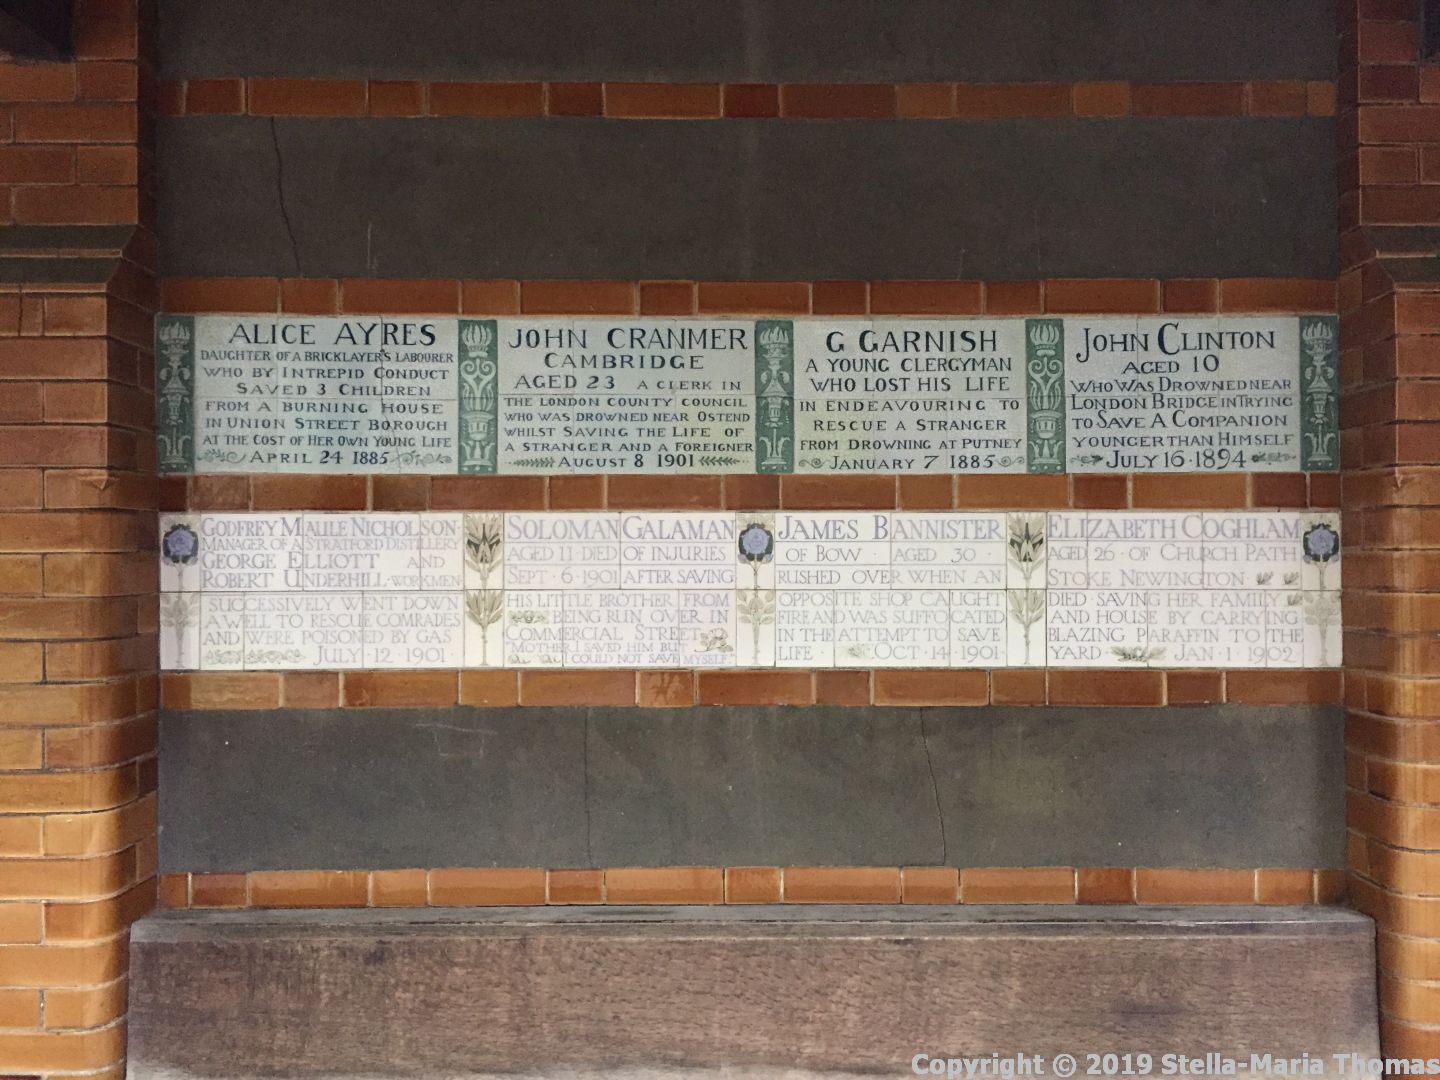 ALICE AYRES
DAUGHTER OF A BRICKLAYER'S LABOURER
WHO BY INTREPID CONDUCT
SAVED 3 CHILDREN
FROM A BURNING HOUSE
IN UNION STREET BOROUGH
AT THE COST OF HER OWN YOUNG LIFE
APRIL 24 1885
JOHN CRANMER
CAMBRIDGE
AGED 23 A CLERK IN
THE LONDON COUNTY COUNCIL
WHO WAS DROWNED NEAR OSTEND
WHILST SAVING THE LIFE OF
A STRANGER AND A FOREIGNER
AUGUST 8 1901
G GARNISH
A YOUNG CLERGYMAN
WHO LOST HIS LIFE
IN ENDEAVOURING TO
RESCUE A STRANGER
FROM DROWNING AT PUTNEY
JANUARY 7 1885
JOHN CLINTON
AGED 10
WHO WAS DROWNED NEAR
LONDON BRIDGE IN TRYING
TO SAVE A COMPANION
YOUNGER THAN HIMSELF
JULY 16 · 1894
GODFREY MAULE NICHOLSON ·
MANAGER OF A STRATFORD DISTILLERY
GEORGE ELLIOTT AND
ROBERT UNDERHILL · WORKMEN
SUCCESSIVELY WENT DOWN
A WELL TO RESCUE COMRADES
AND WERE POISONED BY GAS
JULY · 12 · 1901
SOLOMAN GALAMAN
AGED 11 · DIED OF INJURIES
SEPT · 6 · 1901 AFTER SAVING
HIS LITTLE BROTHER FROM
BEING RUN OVER IN
COMMERCIAL STREET
"MOTHER I SAVED HIM BUT
I COULD NOT SAVE MYSELF."
JAMES BANNISTER
OF BOW · AGED 30 ·
RUSHED OVER WHEN AN
OPPOSITE SHOP CAUGHT
FIRE AND WAS SUFFOCATED
IN THE ATTEMPT TO SAVE
LIFE · OCT · 14 · 1901 ·
ELIZABETH COGHLAM
AGED 26 · OF CHURCH PATH
STOKE NEWINGTON
DIED SAVING HER FAMILY
AND HOUSE BY CARRYING
BLAZING PARAFFIN TO THE
YARD · JAN · 1 · 1902
Copyright © 2019 Stella-Maria Thomas